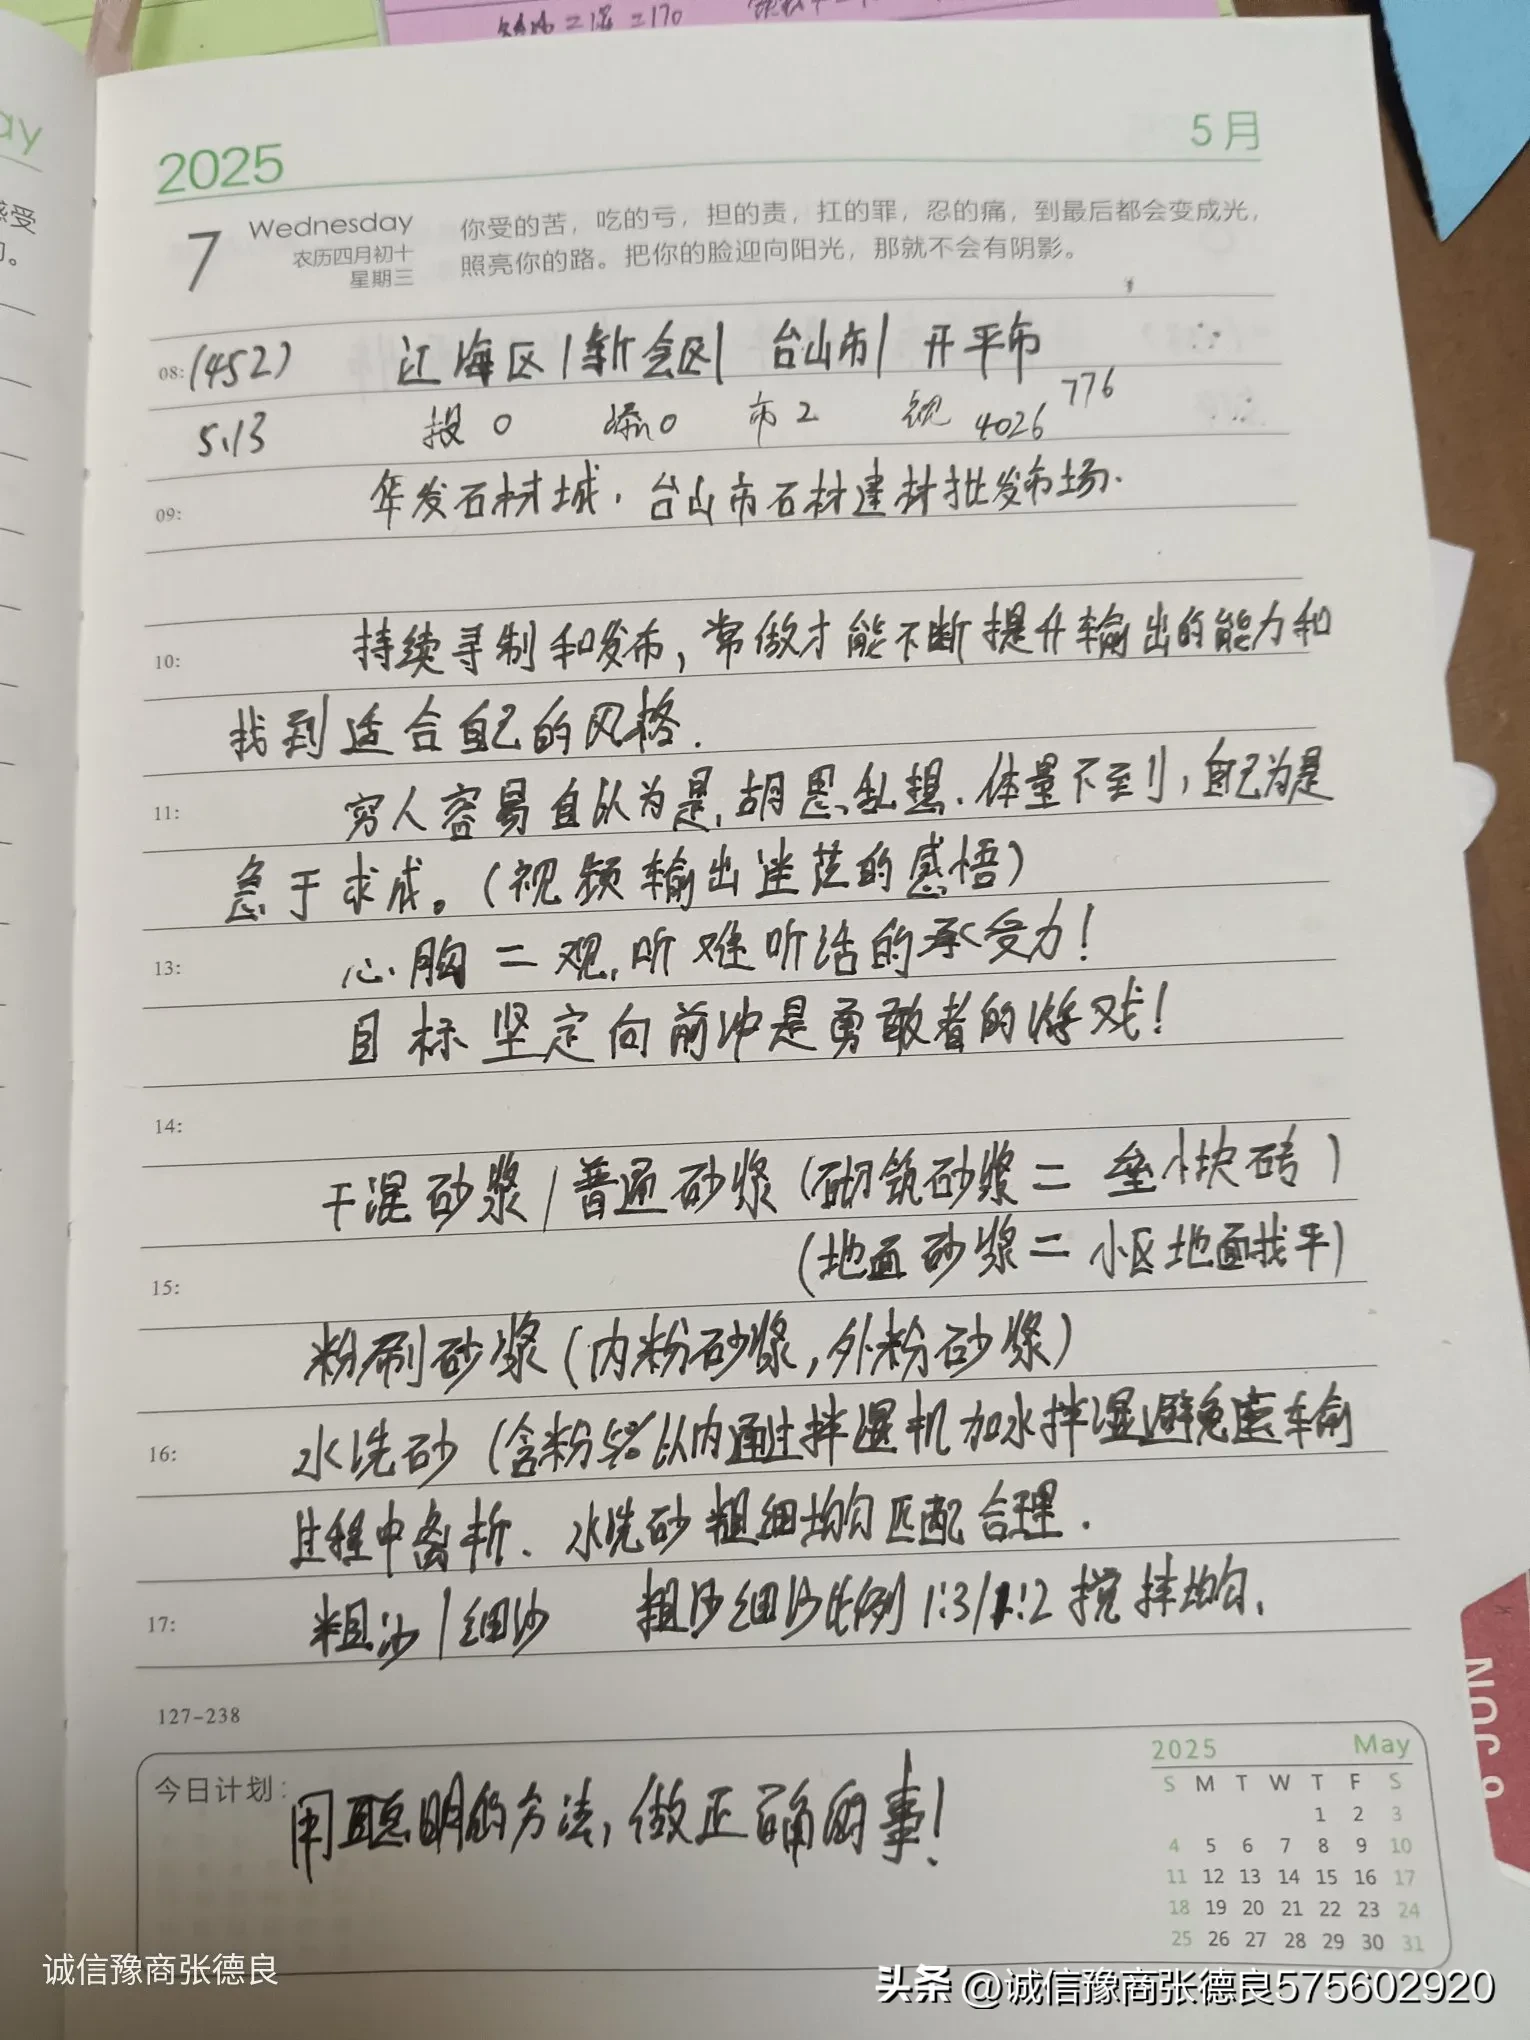 =170
ay
2025
5月
7
Wednesday
农历四月初十
星期三
你受的苦，吃的亏，担的责，扛的罪，忍的痛，到最后都会变成光，
照亮你的路。把你的脸迎向阳光，那就不会有阴影。
08: (452) 江海区|新会区| 台山市| 开平市
5.13 投0 添0 市2 视 4026 776
09: 华发石材城. 台山市石材建材批发市场.
10: 持续录制和发布,常做才能不断提升输出的能力和
找到适合自己的风格.
11: 穷人容易自以为是,胡思乱想.体量不到,自己为是
急于求成。(视频输出迷茫的感悟)
13: 心胸=观,听难听话的承受力!
目标坚定向前冲是勇敢者的游戏!
14:
干混砂浆/普通砂浆(砌筑砂浆=垒小块砖)
15: (地面砂浆=小区地面找平)
粉刷砂浆(内粉砂浆,外粉砂浆)
16: 水洗砂(含粉5%以内通过拌湿机加水拌湿避免运输
过程中离析.水洗砂粗细均匀匹配合理.
17: 粗沙/细沙 粗沙细沙比例1:3/1:2搅拌均匀.
127-238
今日计划: 用聪明的方法,做正确的事!
2025 May
S M T W T F S
1 2 3
4 5 6 7 8 9 10
11 12 13 14 15 16 17
18 19 20 21 22 23 24
25 26 27 28 29 30 31
JUN
诚信豫商张德良
头条 @诚信豫商张德良575602920